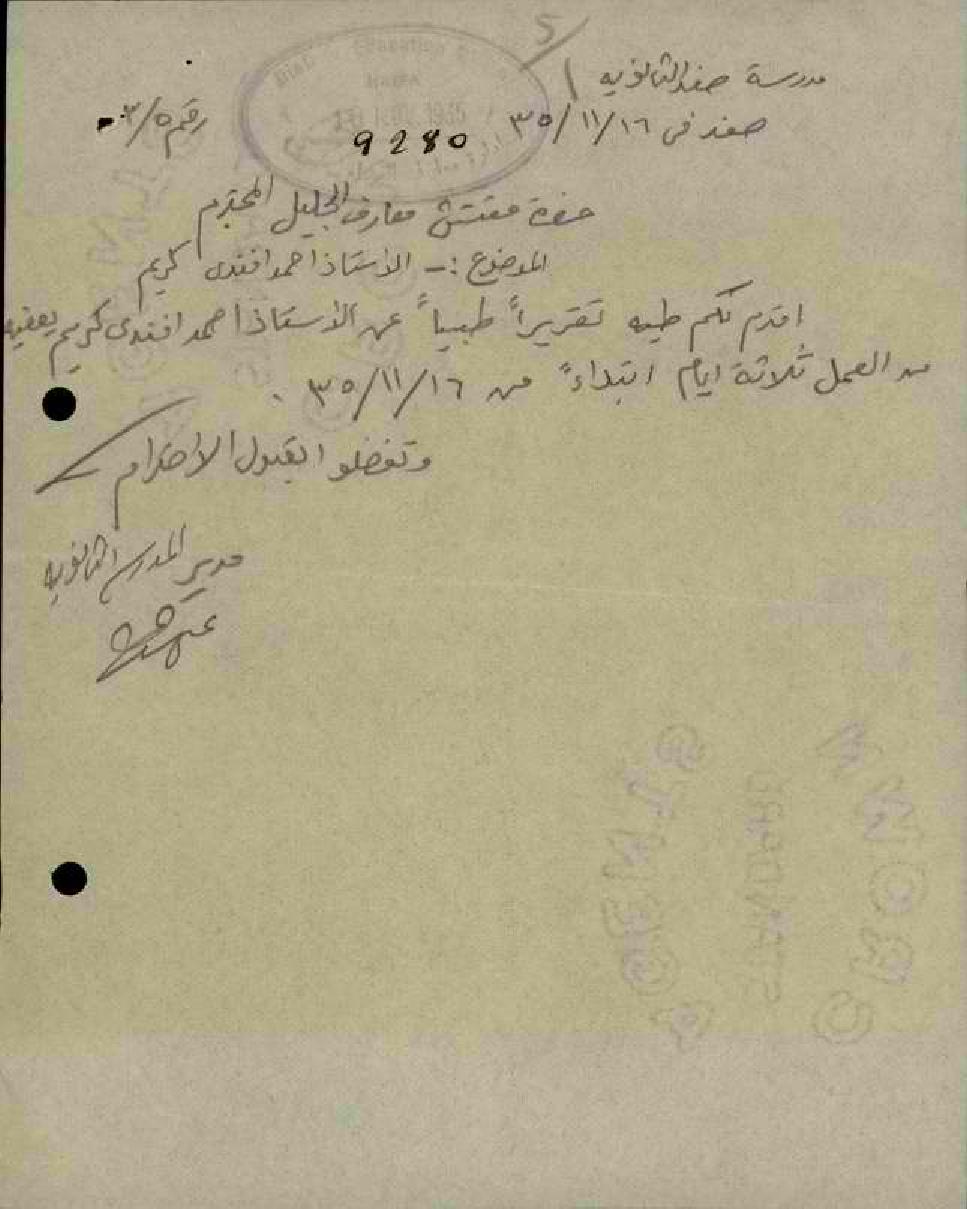 مدرسة صفد الثانويه
صفد في ٣٥/١١/١٦
رقم ٣/٥٠
Education
HAIFA
NOV 1935
9280
حضرة مفتش معارف الجليل المحترم
الموضوع :- الاستاذ احمد افندي كريم
اقدم لكم طيه تقريراً طبياً عن الاستاذ احمد افندي كريم يعفيه
من العمل ثلاثة ايام ابتداءً من ٣٥/١١/١٦ .
وتفضلوا بقبول الاحترام
مدير المدرسة الثانويه